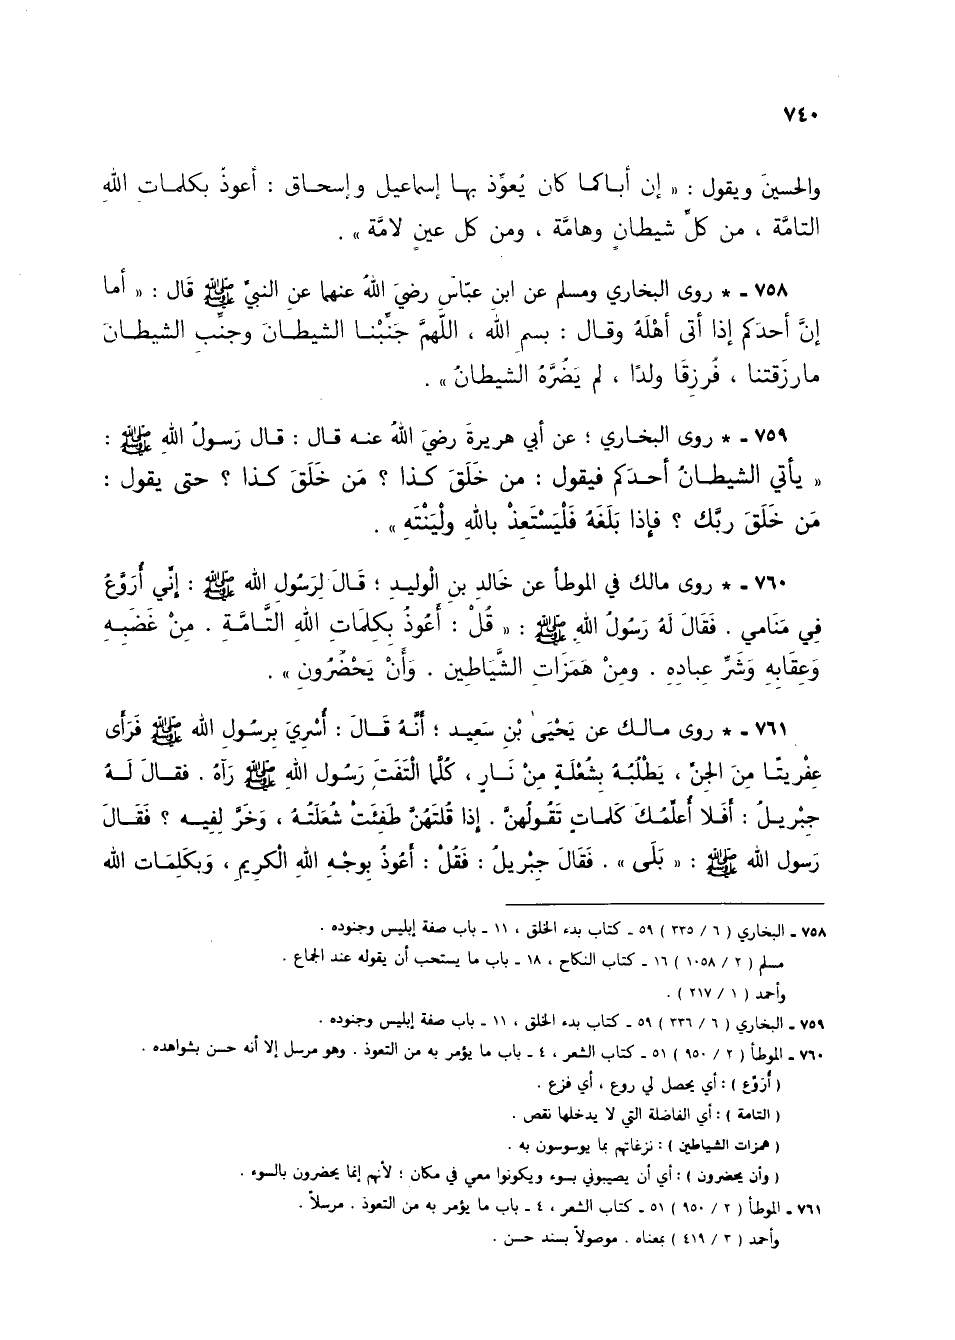 ٧٤٠
والحسينَ ويقول : « إن أباكما كان يُعوِّذ بها إسماعيل وإسحاق : أعوذُ بكلمات اللهِ
التامَّة ، من كلِّ شيطانٍ وهامَّة ، ومن كل عينٍ لامَّة » .
٧٥٨ ـ * روى البخاري ومسلم عن ابن عبّاس رضيَ اللهُ عنهما عن النبيِّ ﷺ قَال : « أما
إنَّ أحدَكم إذا أتى أهْلَهُ وقال : بسمِ الله ، اللَّهمَّ جَنِّبْنا الشيطانَ وجنِّب الشيطانَ
مارزَقتنا ، فُرزِقَا ولدًا ، لم يَضُرَّهُ الشيطانُ » .
٧٥٩ ـ * روى البخاري ؛ عن أبي هريرةَ رضيَ اللهُ عنه قال : قال رَسولُ اللهِ ﷺ :
« يأتي الشيطانُ أحدَكم فيقول : من خَلَقَ كذا ؟ مَن خَلَقَ كذا ؟ حتى يقول :
مَن خَلَقَ ربَّك ؟ فإذا بَلَغَهُ فَلْيَسْتَعذْ باللهِ ولْيَنْتَهِ » .
٧٦٠ ـ * روى مالك في الموطأ عن خَالدِ بنِ الْوليد ؛ قَالَ لِرَسُول الله ﷺ : إنِّي أُرَوَّعُ
فِي مَنَامي . فَقَالَ لَهُ رَسُولُ اللهِ ﷺ : « قُلْ : أَعُوذُ بِكلمَات اللهِ التَّامَّةِ . مِنْ غَضَبِهِ
وَعِقَابِهِ وَشَرِّ عبادِهِ . ومِنْ هَمَزَات الشَّيَاطين . وَأَنْ يَحْضُرُون » .
٧٦١ ـ * روى مالك عن يَحْيَىٰ بْنِ سَعِيد ؛ أَنَّهُ قَالَ : أُسْرِيَ بِرسُول الله ﷺ فَرَأى
عِفْرِيتًا مِنَ الجِنِّ ، يَطْلُبُهُ بِشُعْلَةٍ مِنْ نَارٍ ، كُلَّما الْتَفَتَ رَسُول اللهِ ﷺ رَآهُ . فقالَ لَهُ
جِبْرِيلُ : أَفَلا أُعلِّمُكَ كَلماتٍ تَقُولُهنَّ . إذا قُلتَهُنَّ طَفِئَتْ شُعَلَتُهُ ، وَخَرَّ لِفِيه ؟ فَقَالَ
رَسول الله ﷺ : « بَلَى » . فَقَالَ جِبْريلُ : فَقُلْ : أَعُوذُ بوجْهِ اللهِ الْكَريمِ ، وَبكَلِمَات الله
٧٥٨ ـ البخاري ( ٦ / ٣٣٥ ) ٥٩ ـ كتاب بدء الخلق ، ١١ ـ باب صفة إبليس وجنوده .
مسلم ( ٢ / ١٠٥٨ ) ١٦ ـ كتاب النكاح ، ١٨ ـ باب ما يستحب أن يقوله عند الجماع .
وأحمد ( ١ / ٢١٧ ) .
٧٥٩ ـ البخاري ( ٦ / ٣٣٦ ) ٥٩ ـ كتاب بدء الخلق ، ١١ ـ باب صفة إبليس وجنوده .
٧٦٠ ـ الموطأ ( ٢ / ٩٥٠ ) ٥١ ـ كتاب الشعر ، ٤ ـ باب ما يؤمر به من التعوذ . وهو مرسل إلا أنه حسن بشواهده .
( أُرَوَّع ) : أي يحصل لي روع ، أي فزع .
( التامة ) : أي الفاضلة التي لا يدخلها نقص .
( همزات الشياطين ) : نزغاتهم بما يوسوسون به .
( وأن يحضرون ) : أي أن يصيبوني بسوء ويكونوا معي في مكان ؛ لأنهم إنما يحضرون بالسوء .
٧٦١ ـ الموطأ ( ٢ / ٩٥٠ ) ٥١ ـ كتاب الشعر ، ٤ ـ باب ما يؤمر به من التعوذ . مرسلاً .
وأحمد ( ٣ / ٤١٩ ) بمعناه . موصولاً بسند حسن .